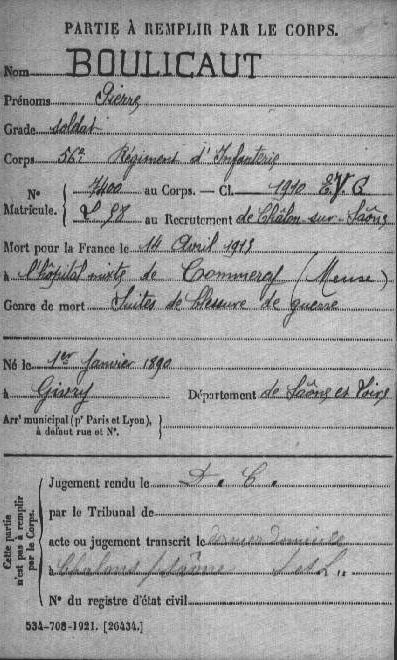 PARTIE À REMPLIR PAR LE CORPS.
Nom BOULICAUT
Prénoms Pierre
Grade soldat
Corps 56e Régiment d'Infanterie
N° Matricule. { 7400 au Corps. — Cl. 1910 E.V.
au Recrutement de Châlon sur Saône
Mort pour la France le 14 Avril 1915
à l'hôpital mixte de Commercy (Meuse)
Genre de mort Suites de blessure de guerre
Né le 1er Janvier 1890
à Givry Département de Saône et Loire
Arrt municipal (pr Paris et Lyon), à défaut rue et N°. }
Cette partie n'est pas à remplir par le Corps. {
Jugement rendu le D. C.
par le Tribunal de
acte ou jugement transcrit le dernier domicile
à Chalons s/ Saône S et L.
N° du registre d'état civil
534-708-1921. [26434.]